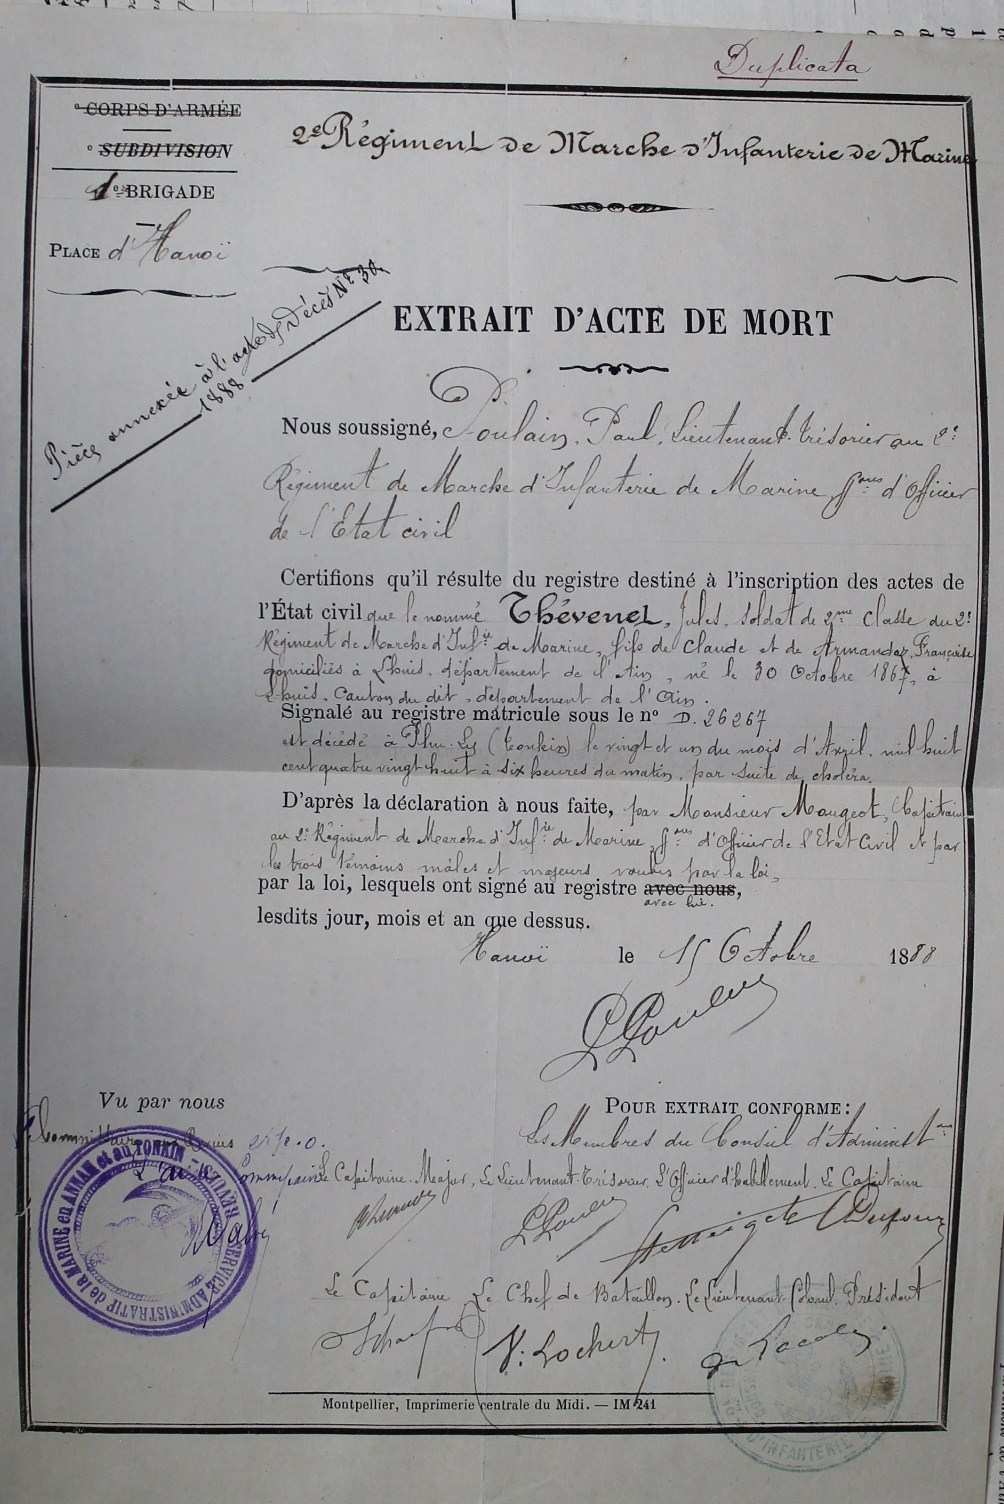 Duplicata
° CORPS D'ARMÉE
° SUBDIVISION
1° BRIGADE
PLACE d'Hanoï
2e Régiment de Marche d'Infanterie de Marine
Pièce annexée à l'acte de Décès No 30
1888
EXTRAIT D'ACTE DE MORT
Nous soussigné, Poulain, Paul, Lieutenant-trésorier au 2e
Régiment de Marche d'Infanterie de Marine, fons d'Officier
de l'Etat civil
Certifions qu'il résulte du registre destiné à l'inscription des actes de
l'État civil que le nommé Thévenet, Jules, soldat de 2me classe du 2e
Régiment de Marche d'Infie de Marine, fils de Claude et de Armandaz, Françoise
domiciliés à Lhuis, département de l'Ain, né le 30 Octobre 1867, à
Lhuis, Canton du dit, département de l'Ain.
Signalé au registre matricule sous le no D. 26267
est décédé à Phu-Ly (Tonkin) le vingt et un du mois d'Avril, mil huit
cent quatre vingt huit à six heures du matin, par suite de choléra.
D'après la déclaration à nous faite, par Monsieur Mougeot, Capitaine
au 2e Régiment de Marche d'Infie de Marine, fons d'Officier de l'Etat Civil et par
les trois témoins mâles et majeurs, voulus par la loi,
par la loi, lesquels ont signé au registre avec nous,
avec lui.
lesdits jour, mois et an que dessus.
Hanoï le 15 Octobre 1888
P. Poulain
Vu par nous
POUR EXTRAIT CONFORME:
Commissaire aux Revues
Les Membres du Conseil d'Administon
Le Capitaine-Major, Le Lieutenant-trésorier, L'Officier d'habillement, Le Capitaine
P. Poulain
Dufour
Le Capitaine Le Chef de Bataillon Le Lieutenant-Colonel Président
V. Lochert
SERVICE ADMINISTRATIF de la MARINE en ANNAM et au TONKIN
REVUES
D'INFANTERIE
Montpellier, Imprimerie centrale du Midi. — IM 241